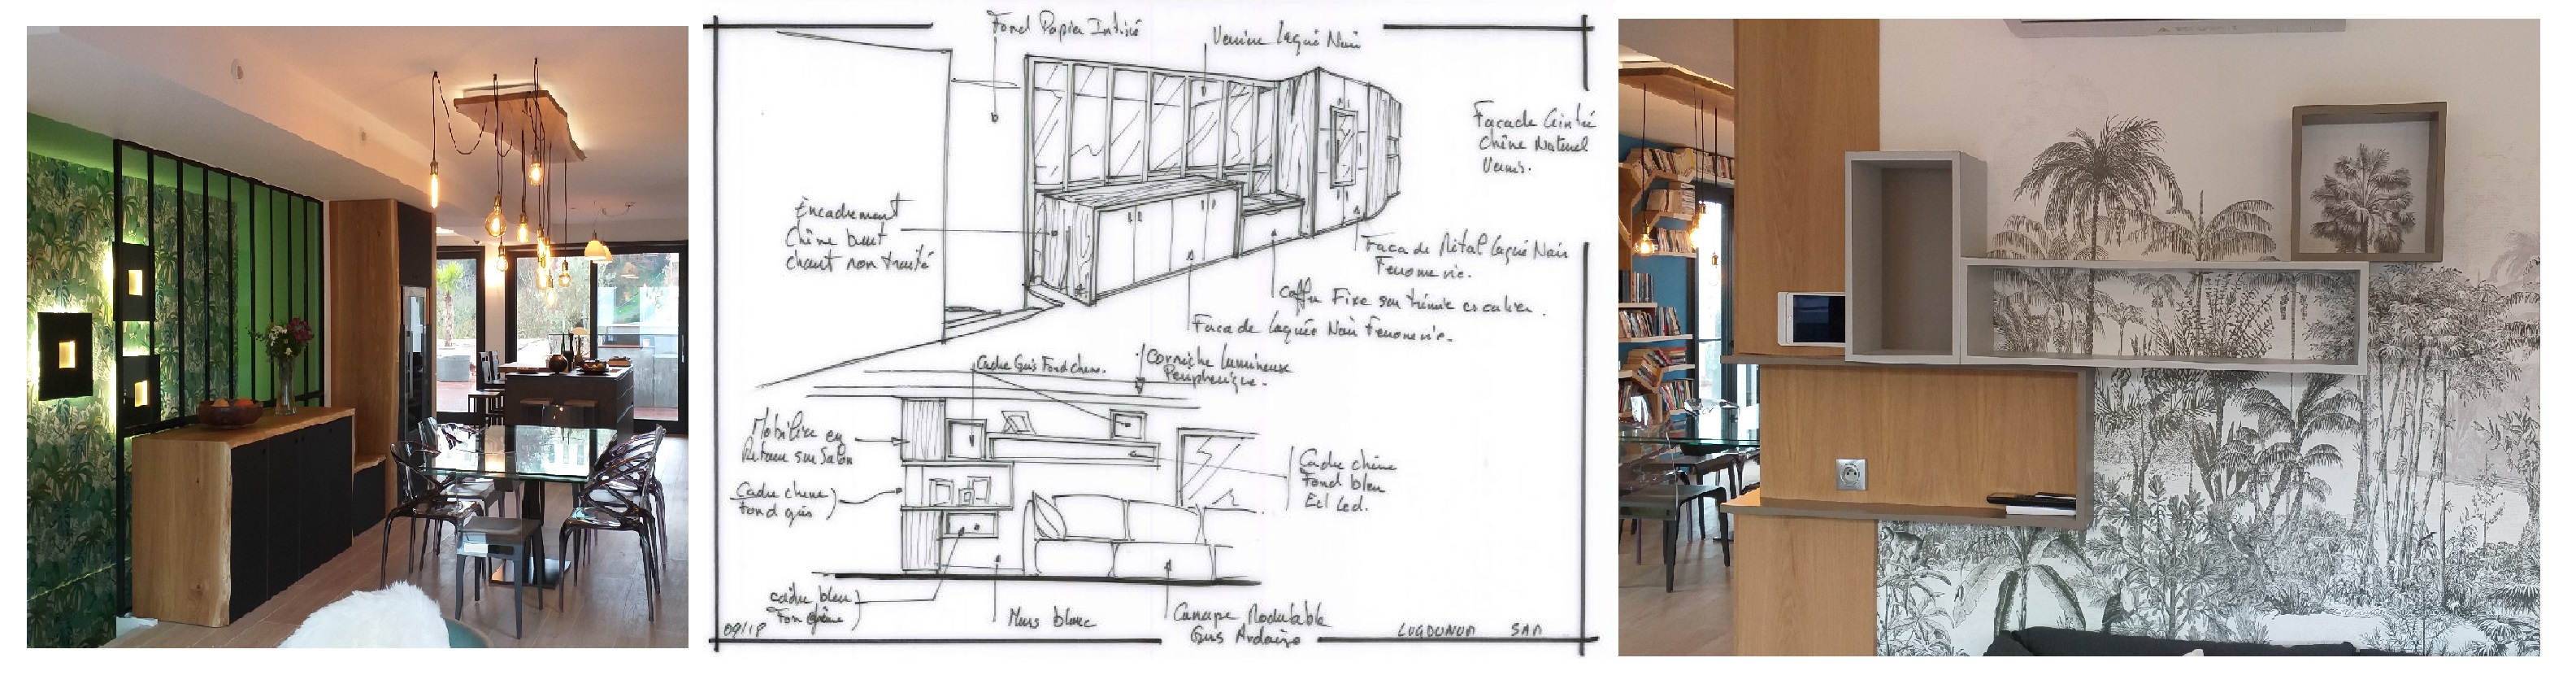 Fond Papier Intissé
Verrière laqué Noir
Façade Cintré
Chêne Naturel
Vernis.
Encadrement
Chêne brut
chant non traité
Facade Métal laqué Noir
Ferronnerie.
coffre Fixe sur trémie escalier.
Facade laquée Noir Ferronnerie.
Cadre Gris Fond chêne.
Corniche lumineuse
Périphérique.
Mobilier en
Retour sur Salon
Cadre chêne
Fond gris
Cadre chêne
Fond bleu
Ecl Led.
cadre bleu
Fond chêne
Murs blanc
Canapé Modulable
Gris Ardoise
09/18
LUGDUNUM SAM